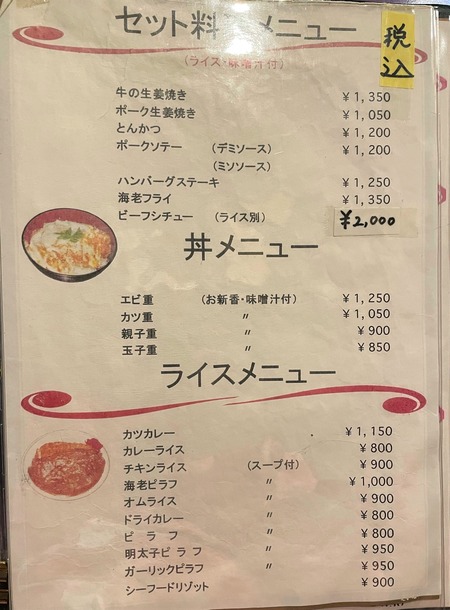 セット料 メニュー
税込
(ライス・味噌汁付)
牛の生姜焼き ￥1,350
ポーク生姜焼き ￥1,050
とんかつ ￥1,200
ポークソテー (デミソース) ￥1,200
(ミソソース)
ハンバーグステーキ ￥1,250
海老フライ ￥1,350
ビーフシチュー (ライス別) ￥2,000
丼メニュー
エビ重 (お新香・味噌汁付) ￥1,250
カツ重 〃 ￥1,050
親子重 〃 ￥900
玉子重 〃 ￥850
ライスメニュー
カツカレー ￥1,150
カレーライス ￥800
チキンライス (スープ付) ￥900
海老ピラフ 〃 ￥1,000
オムライス 〃 ￥900
ドライカレー 〃 ￥800
ピラフ 〃 ￥800
明太子ピラフ 〃 ￥950
ガーリックピラフ 〃 ￥950
シーフードリゾット ￥900